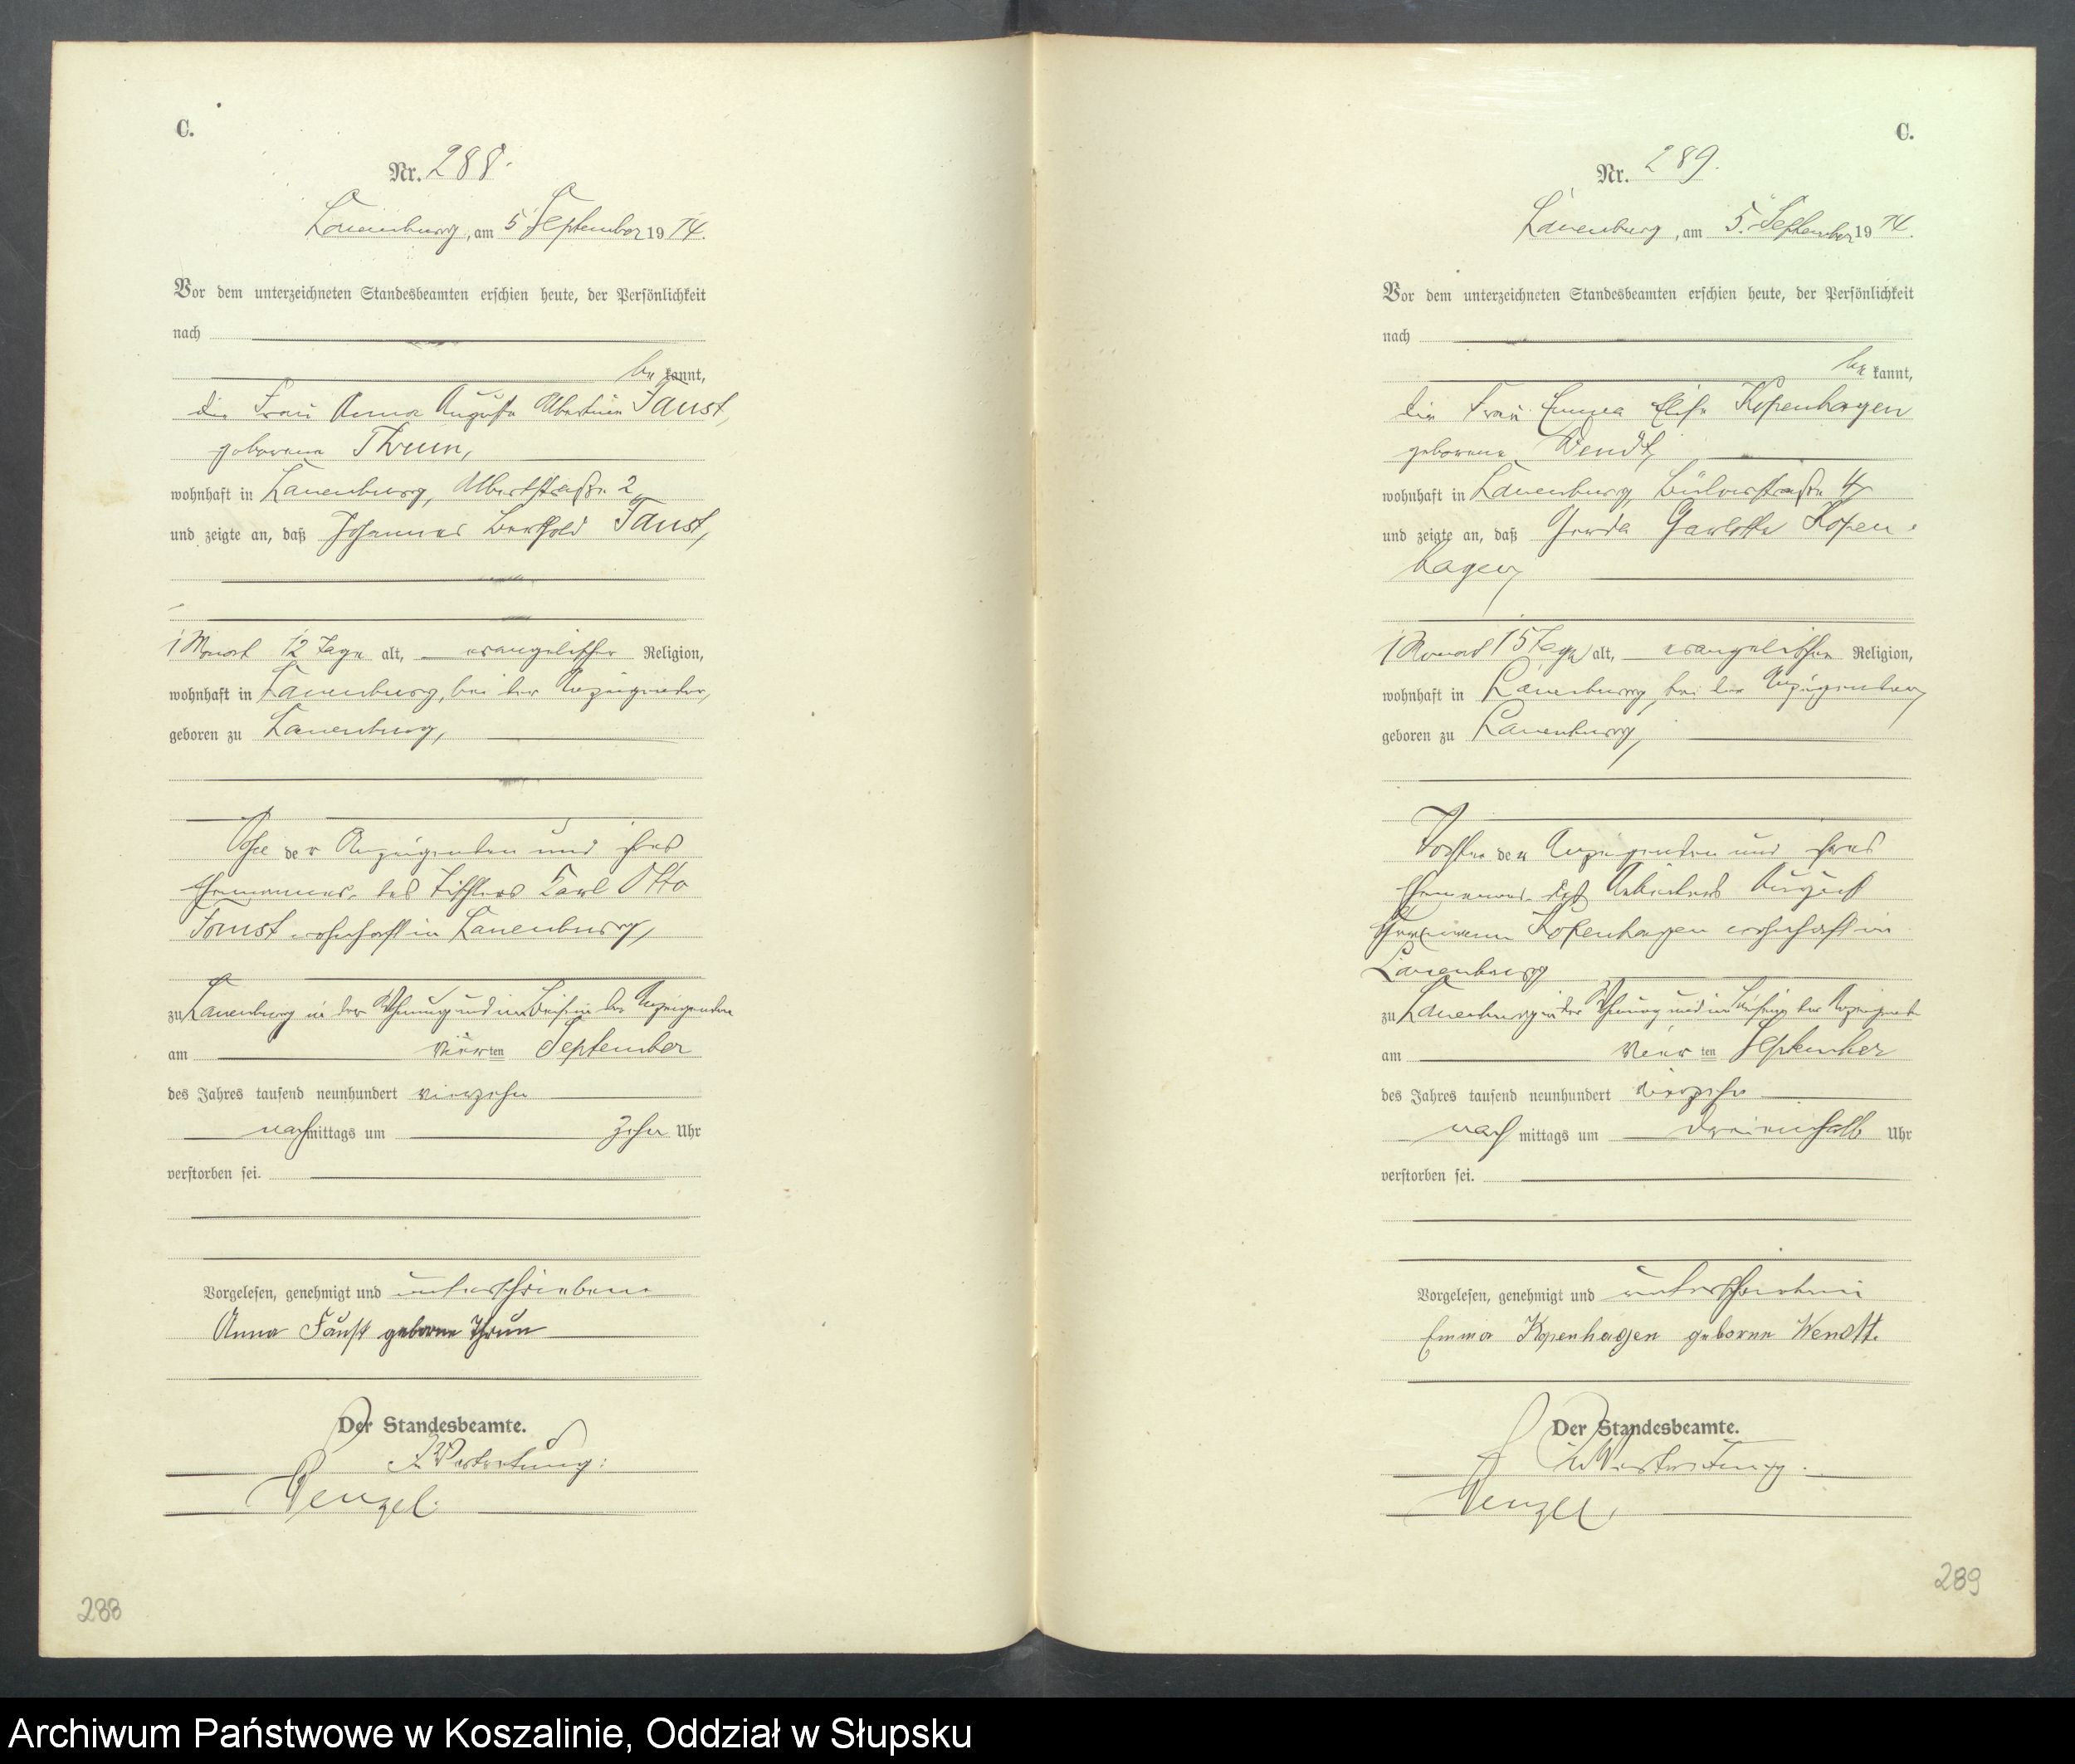 C.
Nr. 288.
Lauenburg, am 5 September 1914.
Vor dem unterzeichneten Standesbeamten erschien heute, der Persönlichkeit
nach
be kannt,
die Frau Anna Auguste Albertine Faust,
geborene Thrun,
wohnhaft in Lauenburg, Albertstraße 2,
und zeigte an, daß Johannes Berthold Faust,
1 Monat 12 Tage alt, evangelischer Religion,
wohnhaft in Lauenburg, bei der Anzeigenden,
geboren zu Lauenburg,
Sohn der Anzeigenden und ihres
Ehemannes, des Tischlers Karl Otto
Faust wohnhaft in Lauenburg,
zu Lauenburg in der Wohnung und im Beisein der Anzeigenden
am vierten September
des Jahres tausend neunhundert vierzehn
nachmittags um zehn Uhr
verstorben sei.
Vorgelesen, genehmigt und unterschrieben
Anna Faust geborne Thrun
Der Standesbeamte.
In Vertretung:
Wenzel.
288
C.
Nr. 289.
Lauenburg, am 5. September 1914.
Vor dem unterzeichneten Standesbeamten erschien heute, der Persönlichkeit
nach
be kannt,
die Frau Emma Elise Kopenhagen
geborene Wendt,
wohnhaft in Lauenburg, Bülowstraße
und zeigte an, daß Gerda Kopen-
hagen,
1 Monat 15 Tage alt, evangelischer Religion,
wohnhaft in Lauenburg, bei der Anzeigenden,
geboren zu Lauenburg,
Tochter der Anzeigenden und ihres
Ehemannes, des Arbeiters August
Hermann Kopenhagen wohnhaft in
Lauenburg
zu Lauenburg in der Wohnung und im Beisein der Anzeigenden
am vierten September
des Jahres tausend neunhundert vierzehn
nach mittags um dreieinhalb Uhr
verstorben sei.
Vorgelesen, genehmigt und unterschrieben
Emma Kopenhagen geborne Wendt.
Der Standesbeamte.
In Vertretung.
Wenzel.
289
Archiwum Państwowe w Koszalinie, Oddział w Słupsku